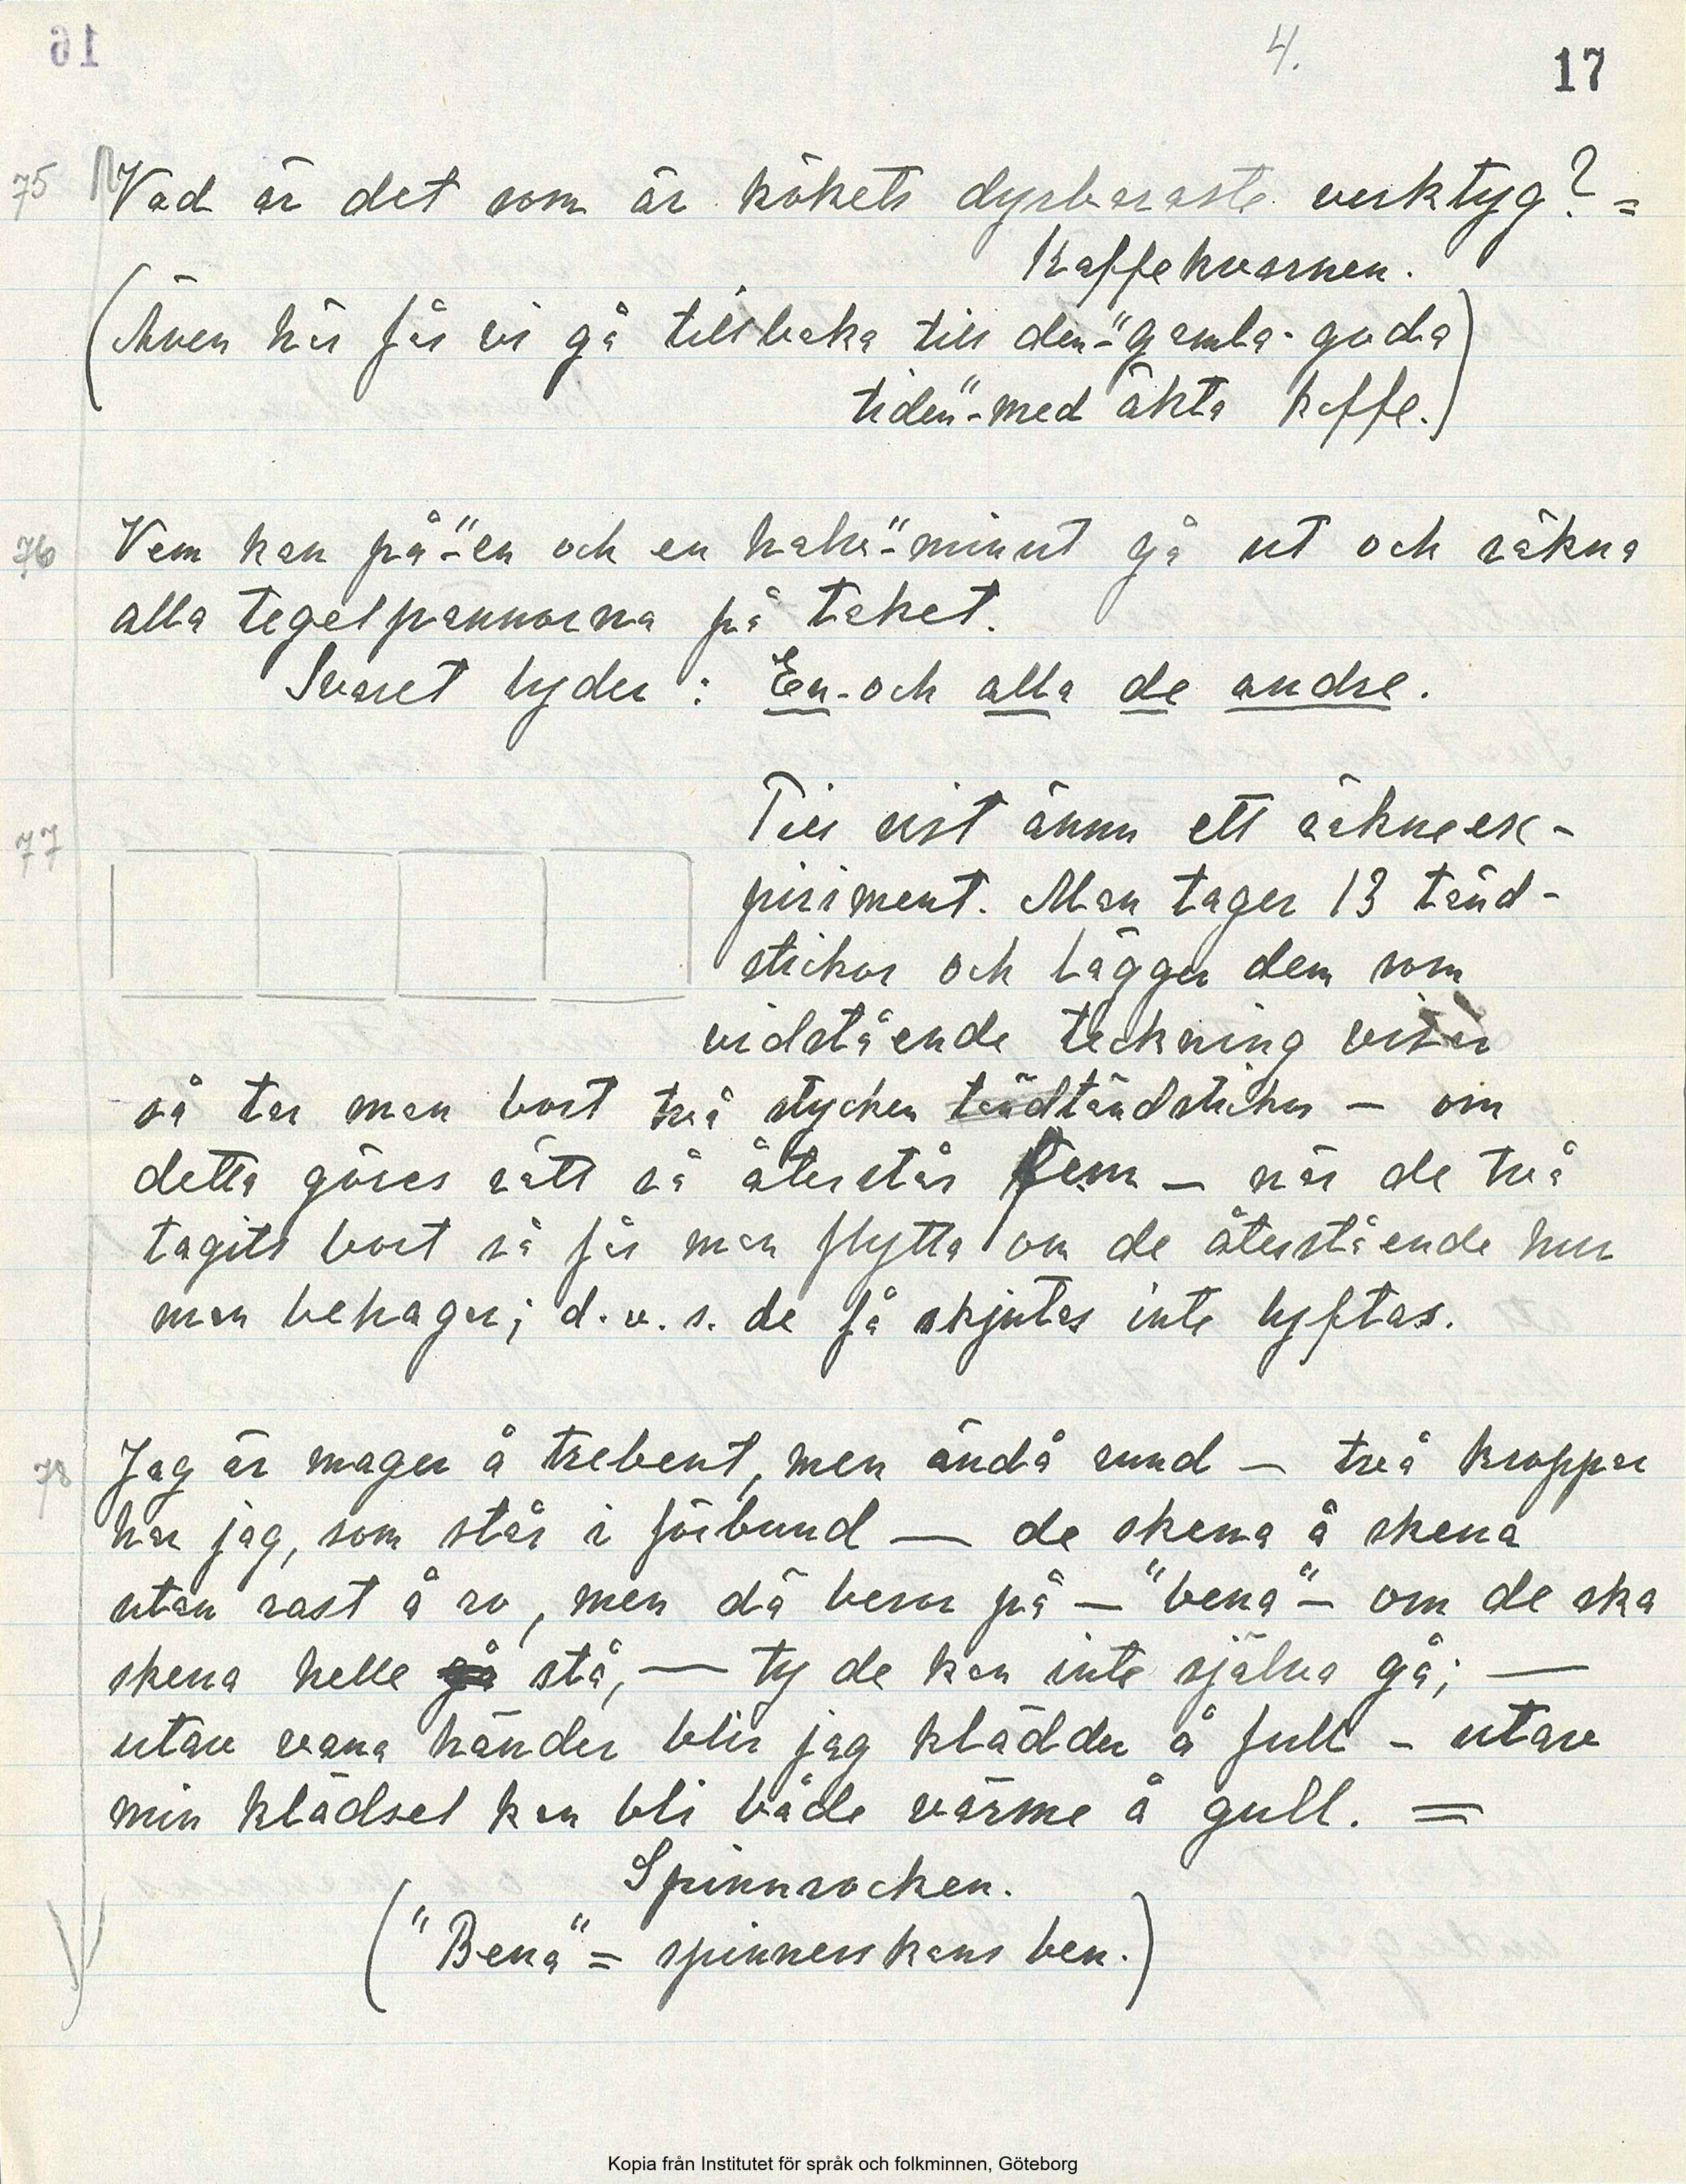 16
4.
17
75 Vad är det som är kökets dyrbaraste verktyg? =
Kaffekvarnen.
(Även här får vi gå tillbaka till den-"gamla-goda
tiden"-med äkta kaffe.)
76 Vem kan på-"en och en halv"-minut gå ut och räkna
alla tegelpannorna på taket.
Svaret lyder: En-och alla de andre.
77
Till sist ännu ett räkneex-
piriment. Man tager 13 tänd-
stickor och lägger dem som
vidstående teckning visar
så tar man bort två stycken tändtändstickor — om
detta göres rätt så återstår fem — när de två
tagits bort så får man flytta om de återstående hur
man behager; d.v.s. de få skjutas inte lyftas.
78 Jag är mager å trebent, men ändå rund — två kroppar
har jag, som står i förbund — de skena å skena
utan rast å ro, men dä beror på — "bena" — om de ska
skena helle gå stå, — ty de kan inte själva gå; —
utav vana händer blir jag klädder å full - utav
min klädsel kan bli både värme å gull. =
Spinnrocken.
("Bena" = spinnerskans ben.)
Kopia från Institutet för språk och folkminnen, Göteborg